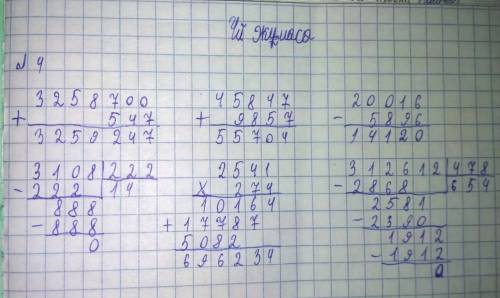 Үй жұмысы
№ 4
3258700 45847 20016
+ 547 + 9857 - 5896
3259247 55704 14120
3108 222 2541 312612 478
- 222 14 x 274 - 2868 654
888 10164 2581
- 888 + 17787 - 2390
0 5082 1912
696234 - 1912
0